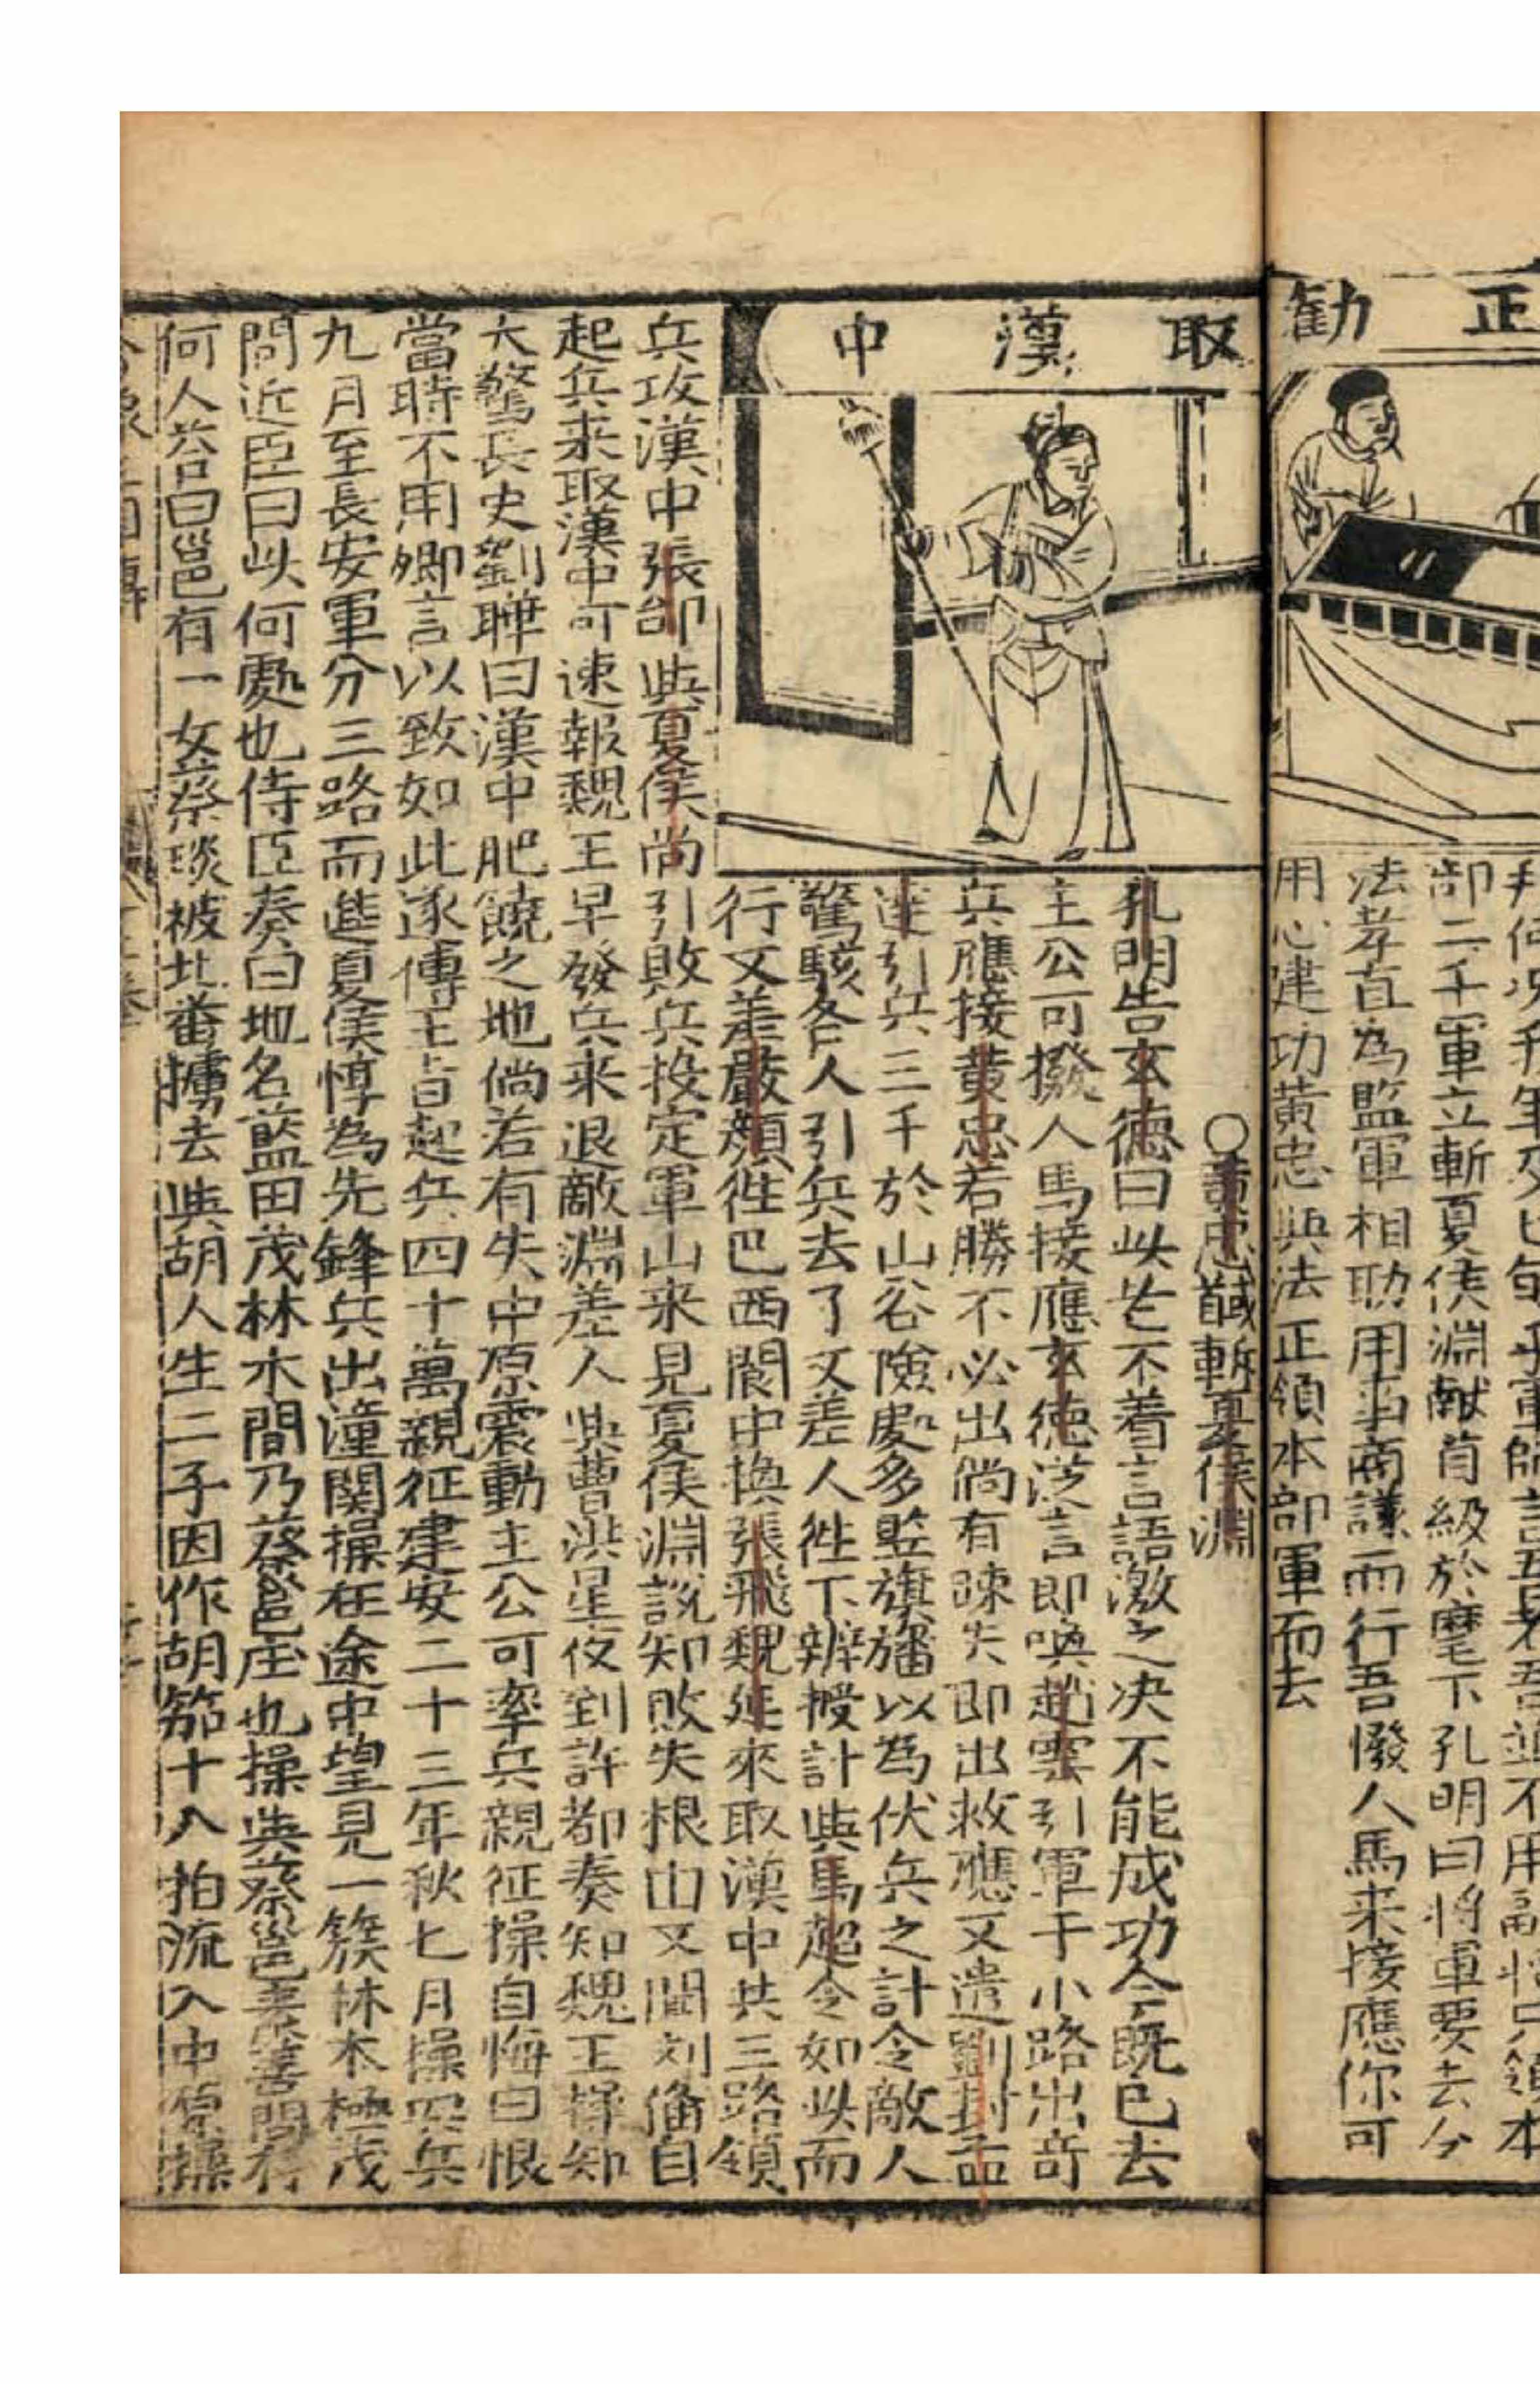 正勸
部二千軍立斬夏侯淵献首級於麾下孔明曰將軍要去分
法孝直為監軍相助用事商議而行吾撥人馬来接應你可
用心建功黃忠與法正領本部軍而去
取漢中
○黃忠馘斬夏侯淵
孔明告玄德曰此老不着言語激之决不能成功今既已去
主公可撥人馬接應玄德從言即喚趙雲引軍于小路出奇
兵應接黄忠若勝不必出倘有踈失即出救應又遣劉封孟
達引兵三千於山谷險處多竪旗旛以為伏兵之計令敵人
驚駭各人引兵去了又差人徃下辨授計與馬超令如此而
行又差嚴顔徃巴西閬中換張飛魏延來取漢中共三路領
兵攻漢中張郃與夏侯尚引敗兵投定軍山来見夏侯淵説知敗失根由又聞刘俻自
起兵来取漢中可速報魏王早發兵来退敵淵差人與曹洪星夜到許都奏知魏王操知
大驚長史劉曄曰漢中肥饒之地倘若有失中原震動主公可率兵親征操自悔曰恨
當時不用卿言以致如此遂傳王旨起兵四十萬親征建安二十三年秋七月操四兵
九月至長安軍分三路而進夏侯惇為先鋒兵出潼関操在途中望見一簇林木極茂
問近臣曰此何處也侍臣奏曰地名藍田茂林木間乃蔡邕庄也操與蔡邕素善問有
何人荅曰邕有一女蔡琰被北番擄去與胡人生二子因作胡笳十八拍流入中原操